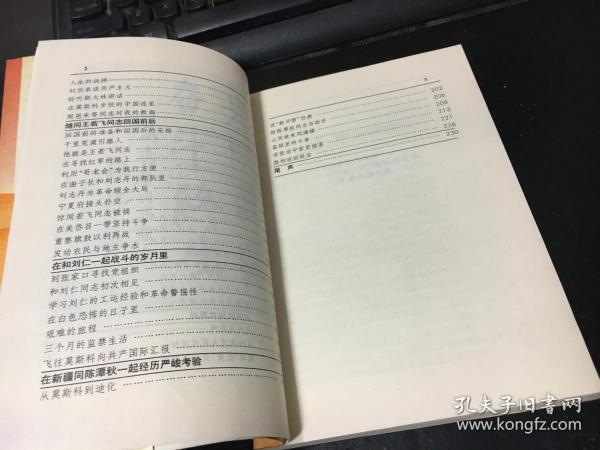 2
人生的抉择
刘伯承谈共产主义
聆听斯大林讲话
在莫斯科步校的中国连里
周恩来等同志对我的教诲
随同王若飞同志回国前后
回国前的准备和回国后的安排
千里荒漠引路人
他就是王若飞同志
在寻找红军的路上
利用“哥老会”为我们方便
在谢子长和刘志丹的部队里
刘志丹为革命顾全大局
宁夏府接头扑空
惊闻若飞同志被捕
在美岱召一带坚持斗争
重整旗鼓以利再战
发动农民与地主争水
在和刘仁一起战斗的岁月里
到张家口寻找党组织
和刘仁同志初次相见
学习刘仁的工运经验和革命警惕性
在白色恐怖的日子里
艰难的旅程
三个月的监禁生活
飞往莫斯科向共产国际汇报
在新疆同陈潭秋一起经历严峻考验
从莫斯科到迪化
3
202
205
209
213
山雨欲来风满楼
221
监狱里的斗争
226
230
胜利返回延安
尾声
孔夫子旧书网
www.kongfz.com